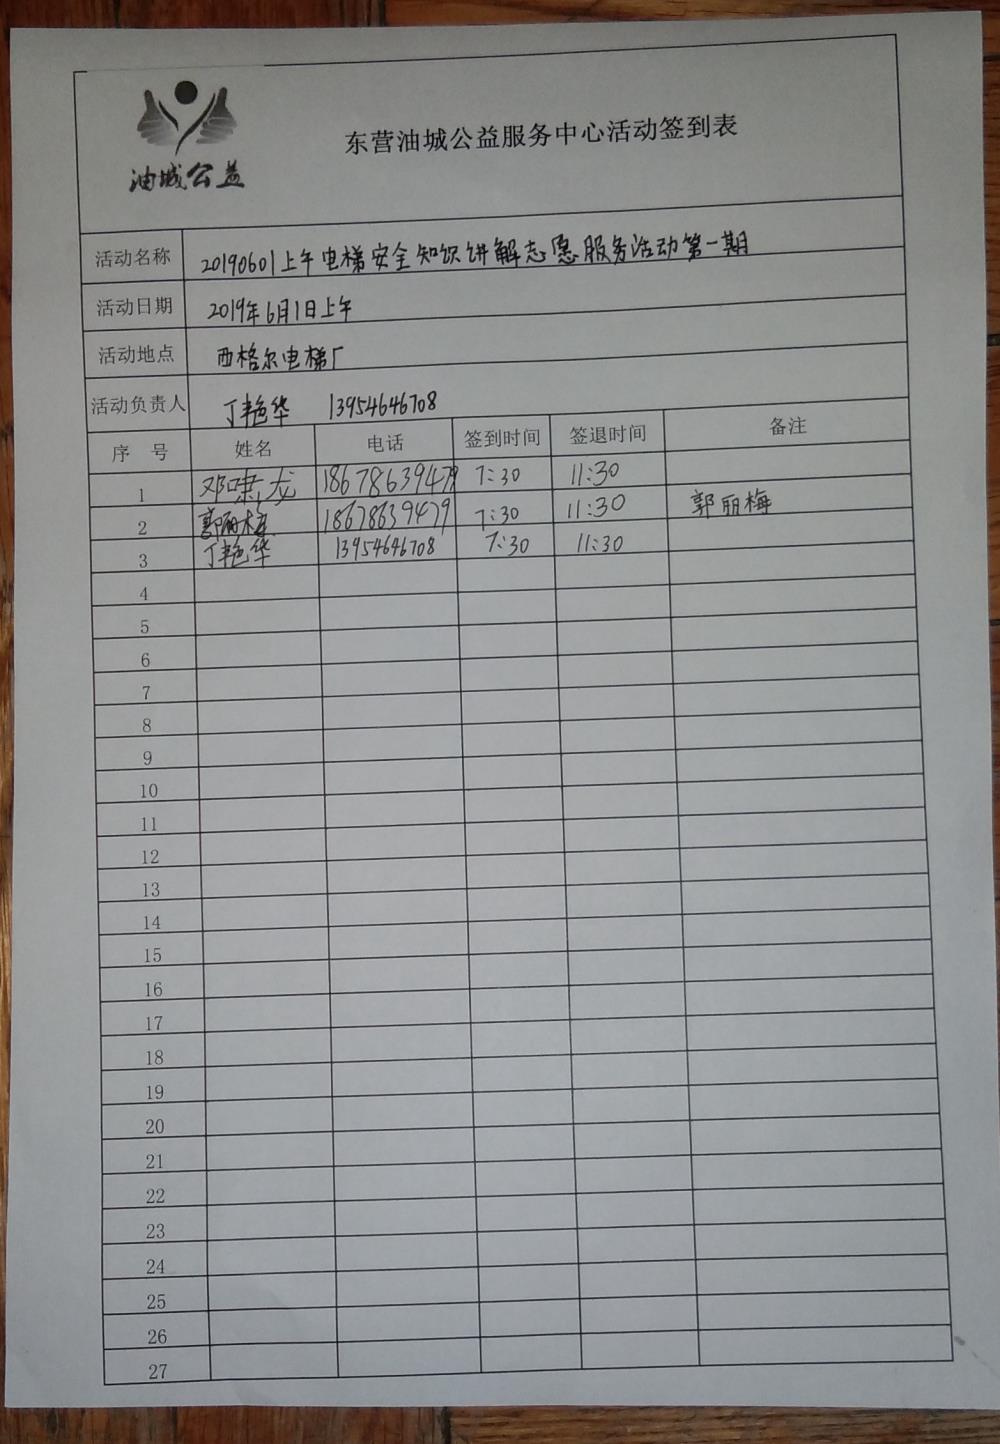 油城公益
东营油城公益服务中心活动签到表
活动名称 20190601上午电梯安全知识讲解志愿服务活动第一期
活动日期 2019年6月1日上午
活动地点 西格尔电梯厂
活动负责人 丁艳华 13954646708
序 号 姓名 电话 签到时间 签退时间 备注
1 邓啸龙 18678639479 7:30 11:30
2 郭丽梅 18678639479 7:30 11:30 郭丽梅
3 丁艳华 13954646708 7:30 11:30
4
5
6
7
8
9
10
11
12
13
14
15
16
17
18
19
20
21
22
23
24
25
26
27